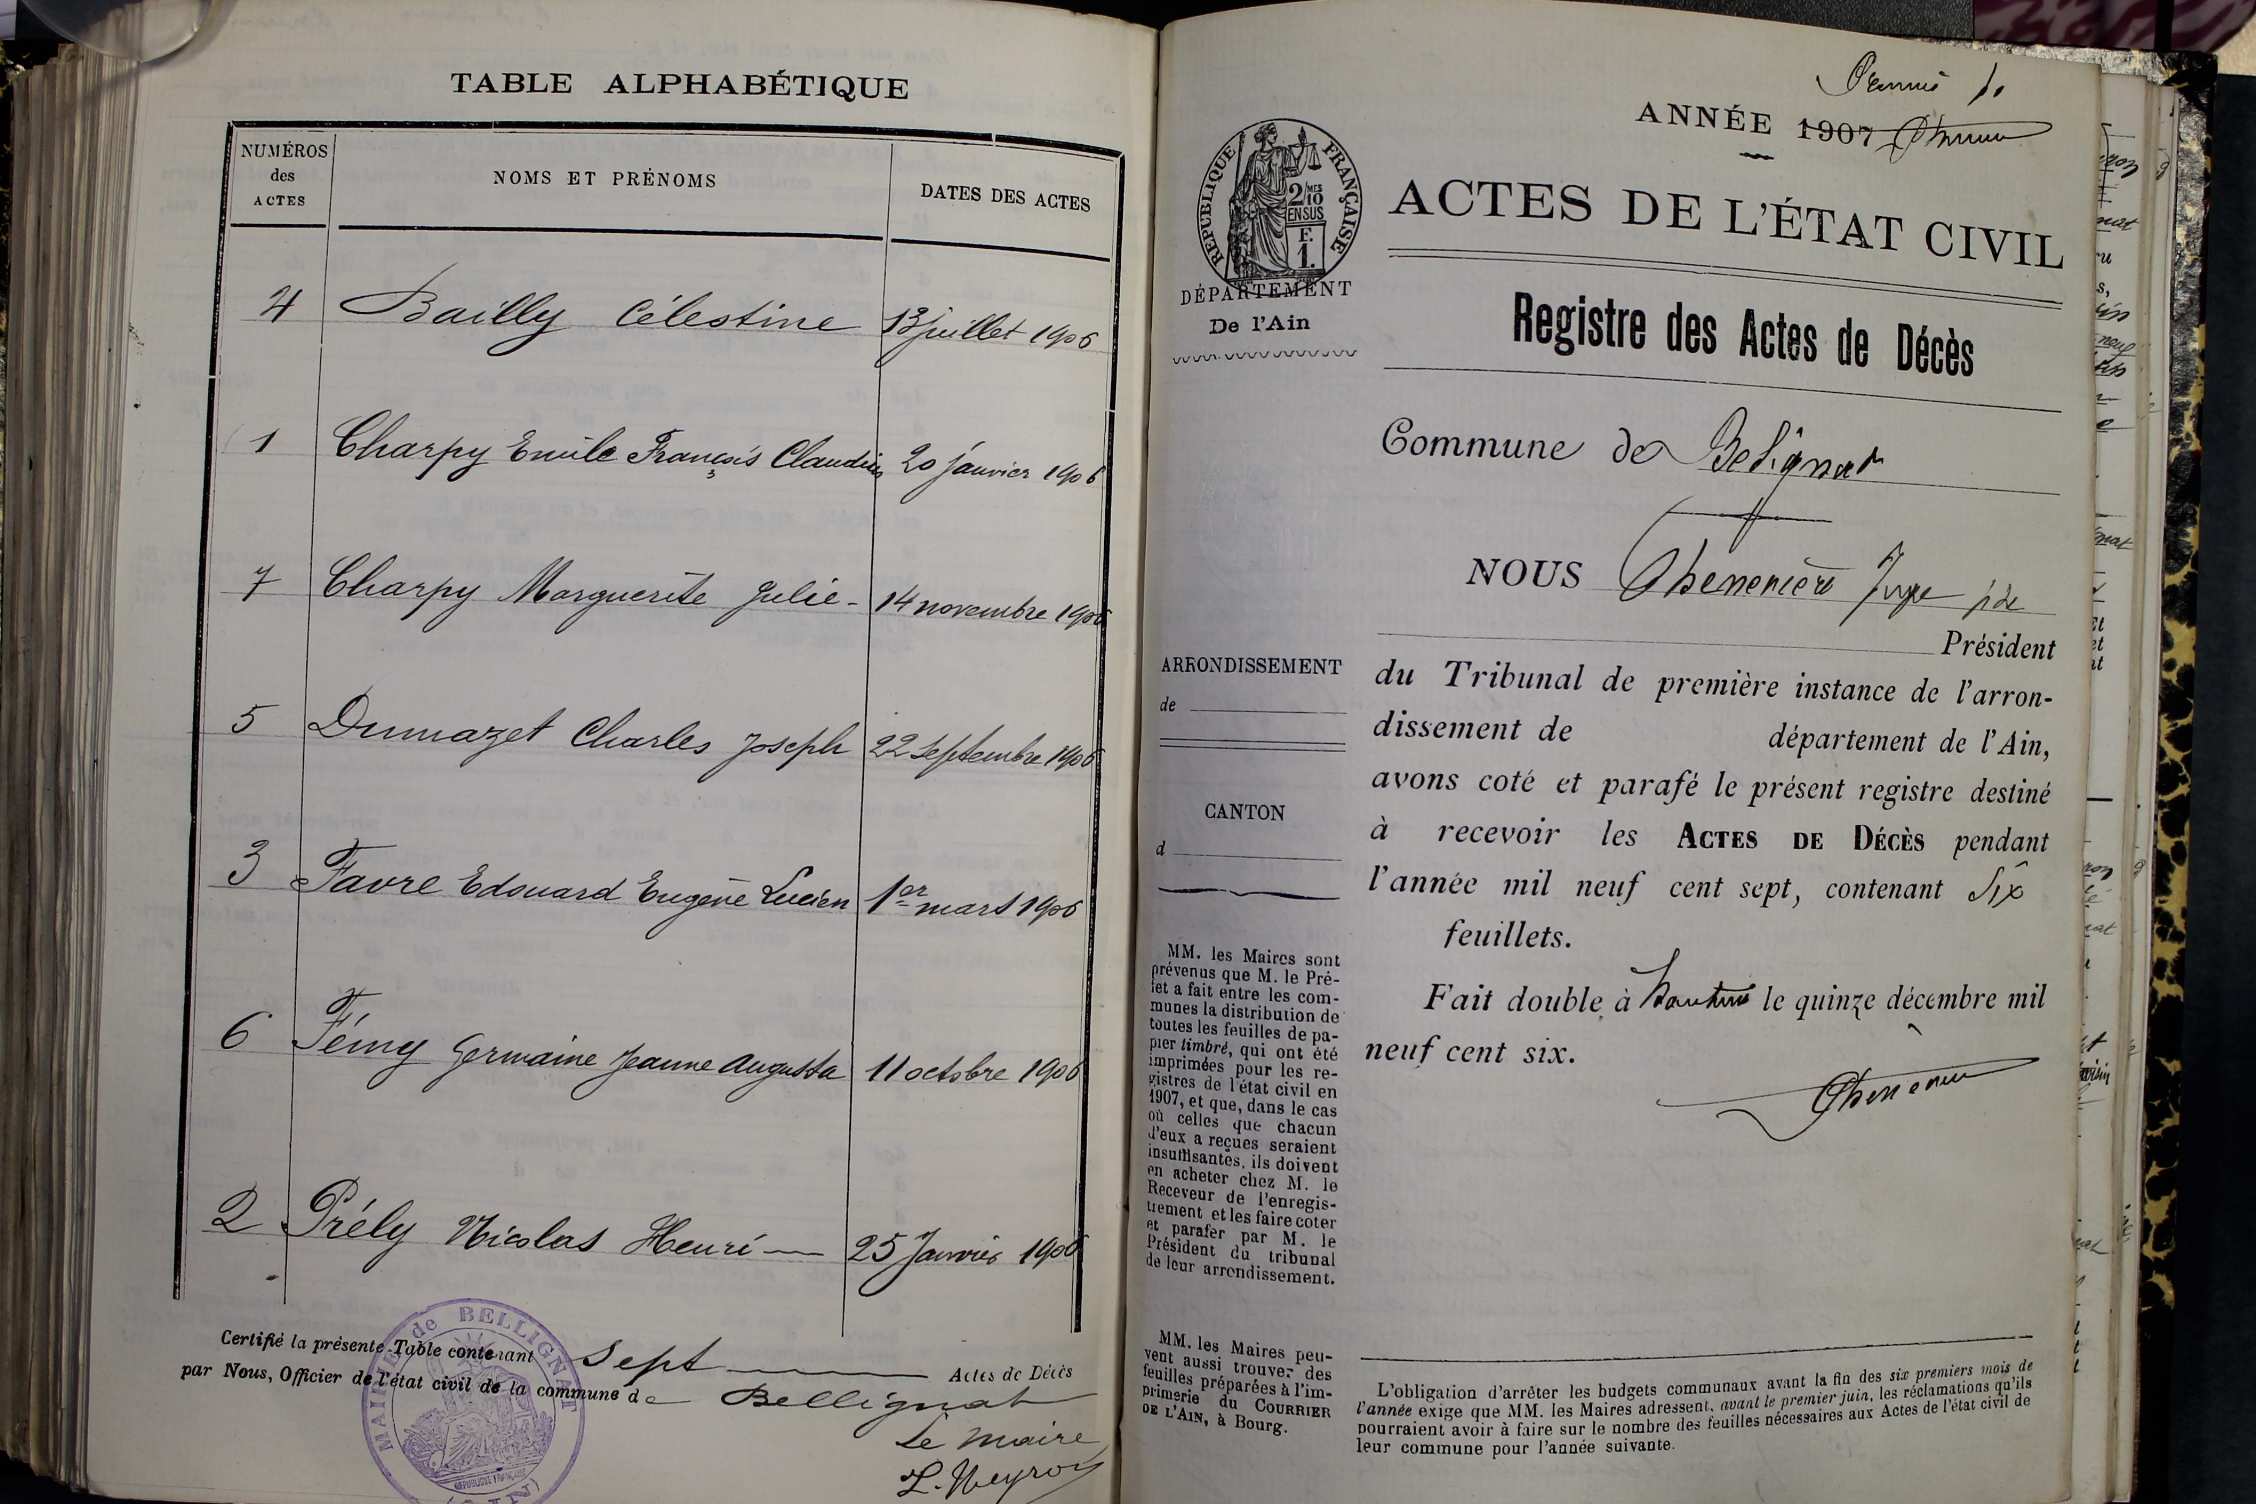 TABLE ALPHABÉTIQUE
NUMÉROS des ACTES
NOMS ET PRÉNOMS
DATES DES ACTES
4 Bailly Célestine 13 juillet 1906
1 Charpy Emile François Claudius 20 janvier 1906
7 Charpy Marguerite Julie - 14 novembre 1906
5 Dumazet Charles Joseph 22 septembre 1906
3 Favre Edouard Eugène Lucien 1er mars 1906
6 Fémy Germaine Jeanne Augusta 11 octobre 1906
2 Prély Nicolas Henri — 25 Janvier 1906
Certifié la présente Table contenant sept — Actes de Décès
par Nous, Officier de l'état civil de la commune de Bellignat
Le Maire
L. Neyroud
MAIRIE de BELLIGNAT
RÉPUBLIQUE FRANÇAISE
(AIN)
ANNÉE 1907
RÉPUBLIQUE FRANÇAISE
2/10 MES
EN SUS
F.
1.
DÉPARTEMENT
De l'Ain
ARRONDISSEMENT
de
CANTON
d
MM. les Maires sont
prévenus que M. le Pré-
fet a fait entre les com-
munes la distribution de
toutes les feuilles de pa-
pier timbré, qui ont été
imprimées pour les re-
gistres de l'état civil en
1907, et que, dans le cas
où celles que chacun
d'eux a reçues seraient
insuffisantes, ils doivent
en acheter chez M. le
Receveur de l'enregis-
trement et les faire coter
et parafer par M. le
Président du tribunal
de leur arrondissement.
MM. les Maires peu-
vent aussi trouver des
feuilles préparées à l'im-
primerie du COURRIER
DE L'AIN, à Bourg.
ACTES DE L'ÉTAT CIVIL
Registre des Actes de Décès
Commune de Belignat
NOUS Juge
Président
du Tribunal de première instance de l'arron-
dissement de département de l'Ain,
avons coté et parafé le présent registre destiné
à recevoir les ACTES DE DÉCÈS pendant
l'année mil neuf cent sept, contenant Six
feuillets.
Fait double à Nantua le quinze décembre mil
neuf cent six.
L'obligation d'arrêter les budgets communaux avant la fin des six premiers mois de
l'année exige que MM. les Maires adressent, avant le premier juin, les réclamations qu'ils
pourraient avoir à faire sur le nombre des feuilles nécessaires aux Actes de l'état civil de
leur commune pour l'année suivante.